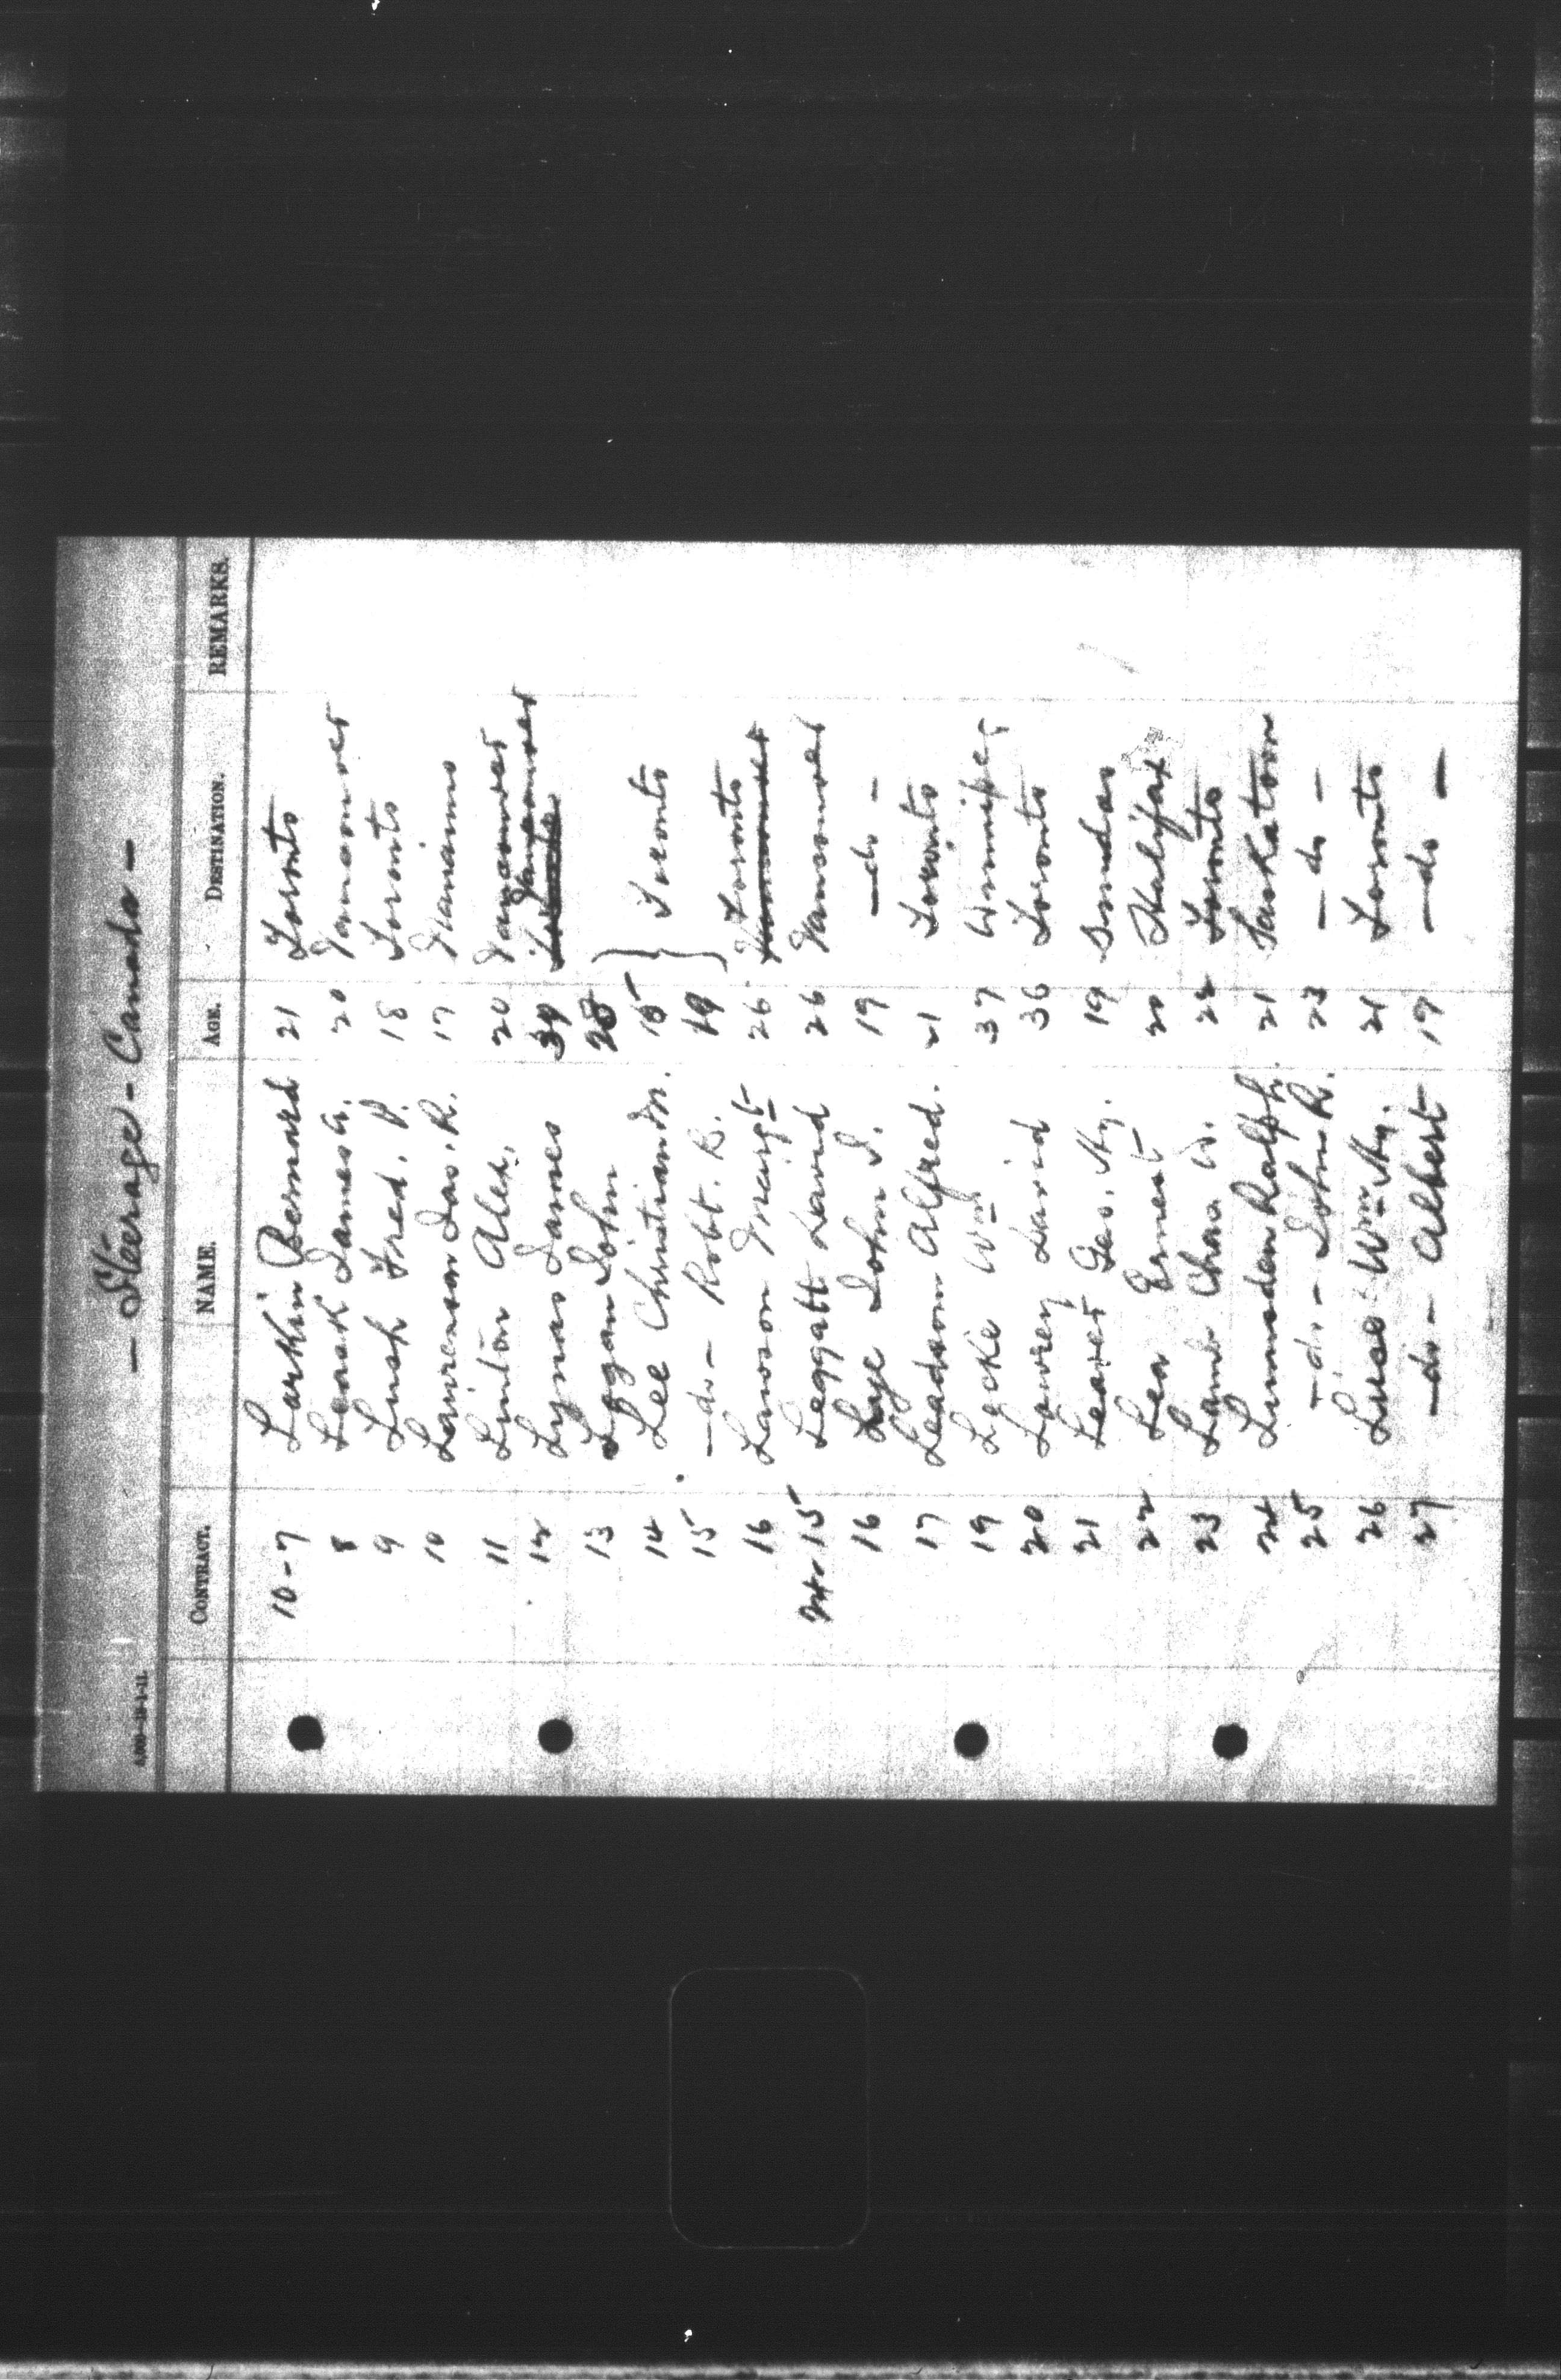 — Steerage - Canada —
CONTRACT. NAME. AGE. DESTINATION. REMARKS.
10-7 Larkin Bernard 21 Toronto
8 Leask James G. 20 Vancouver
9 Lush Fred. P. 18 Toronto
10 Lawrenson Jas. R. 17 Nanaimo
11 Linton Alex. 20 Vancouver
12 Lynas James 39 Toronto Vancouver
13 Loggan John 28
14 Lee Christian 18 } Toronto
15 —do— Robt. B. 19
16 Lawson Margt 26 Vancouver Toronto
24-15 Leggatt David 26 Vancouver
16 Lye John S. 19 —do—
17 Leadsom Alfred. 21 Toronto
19 Locke Wm 37 Winnipeg
20 Lowrey David 36 Toronto
21 Leaver Geo. Hy. 19
22 Lea Ernest 20 Halifax
23 Lamb Chas W. 22 Toronto
24 Lumsden Ralph. 21 Saskatoon
25 —do— John R. 23 —do—
26 Wm Hy. 21 Toronto
27 —do— Albert 19 —do—